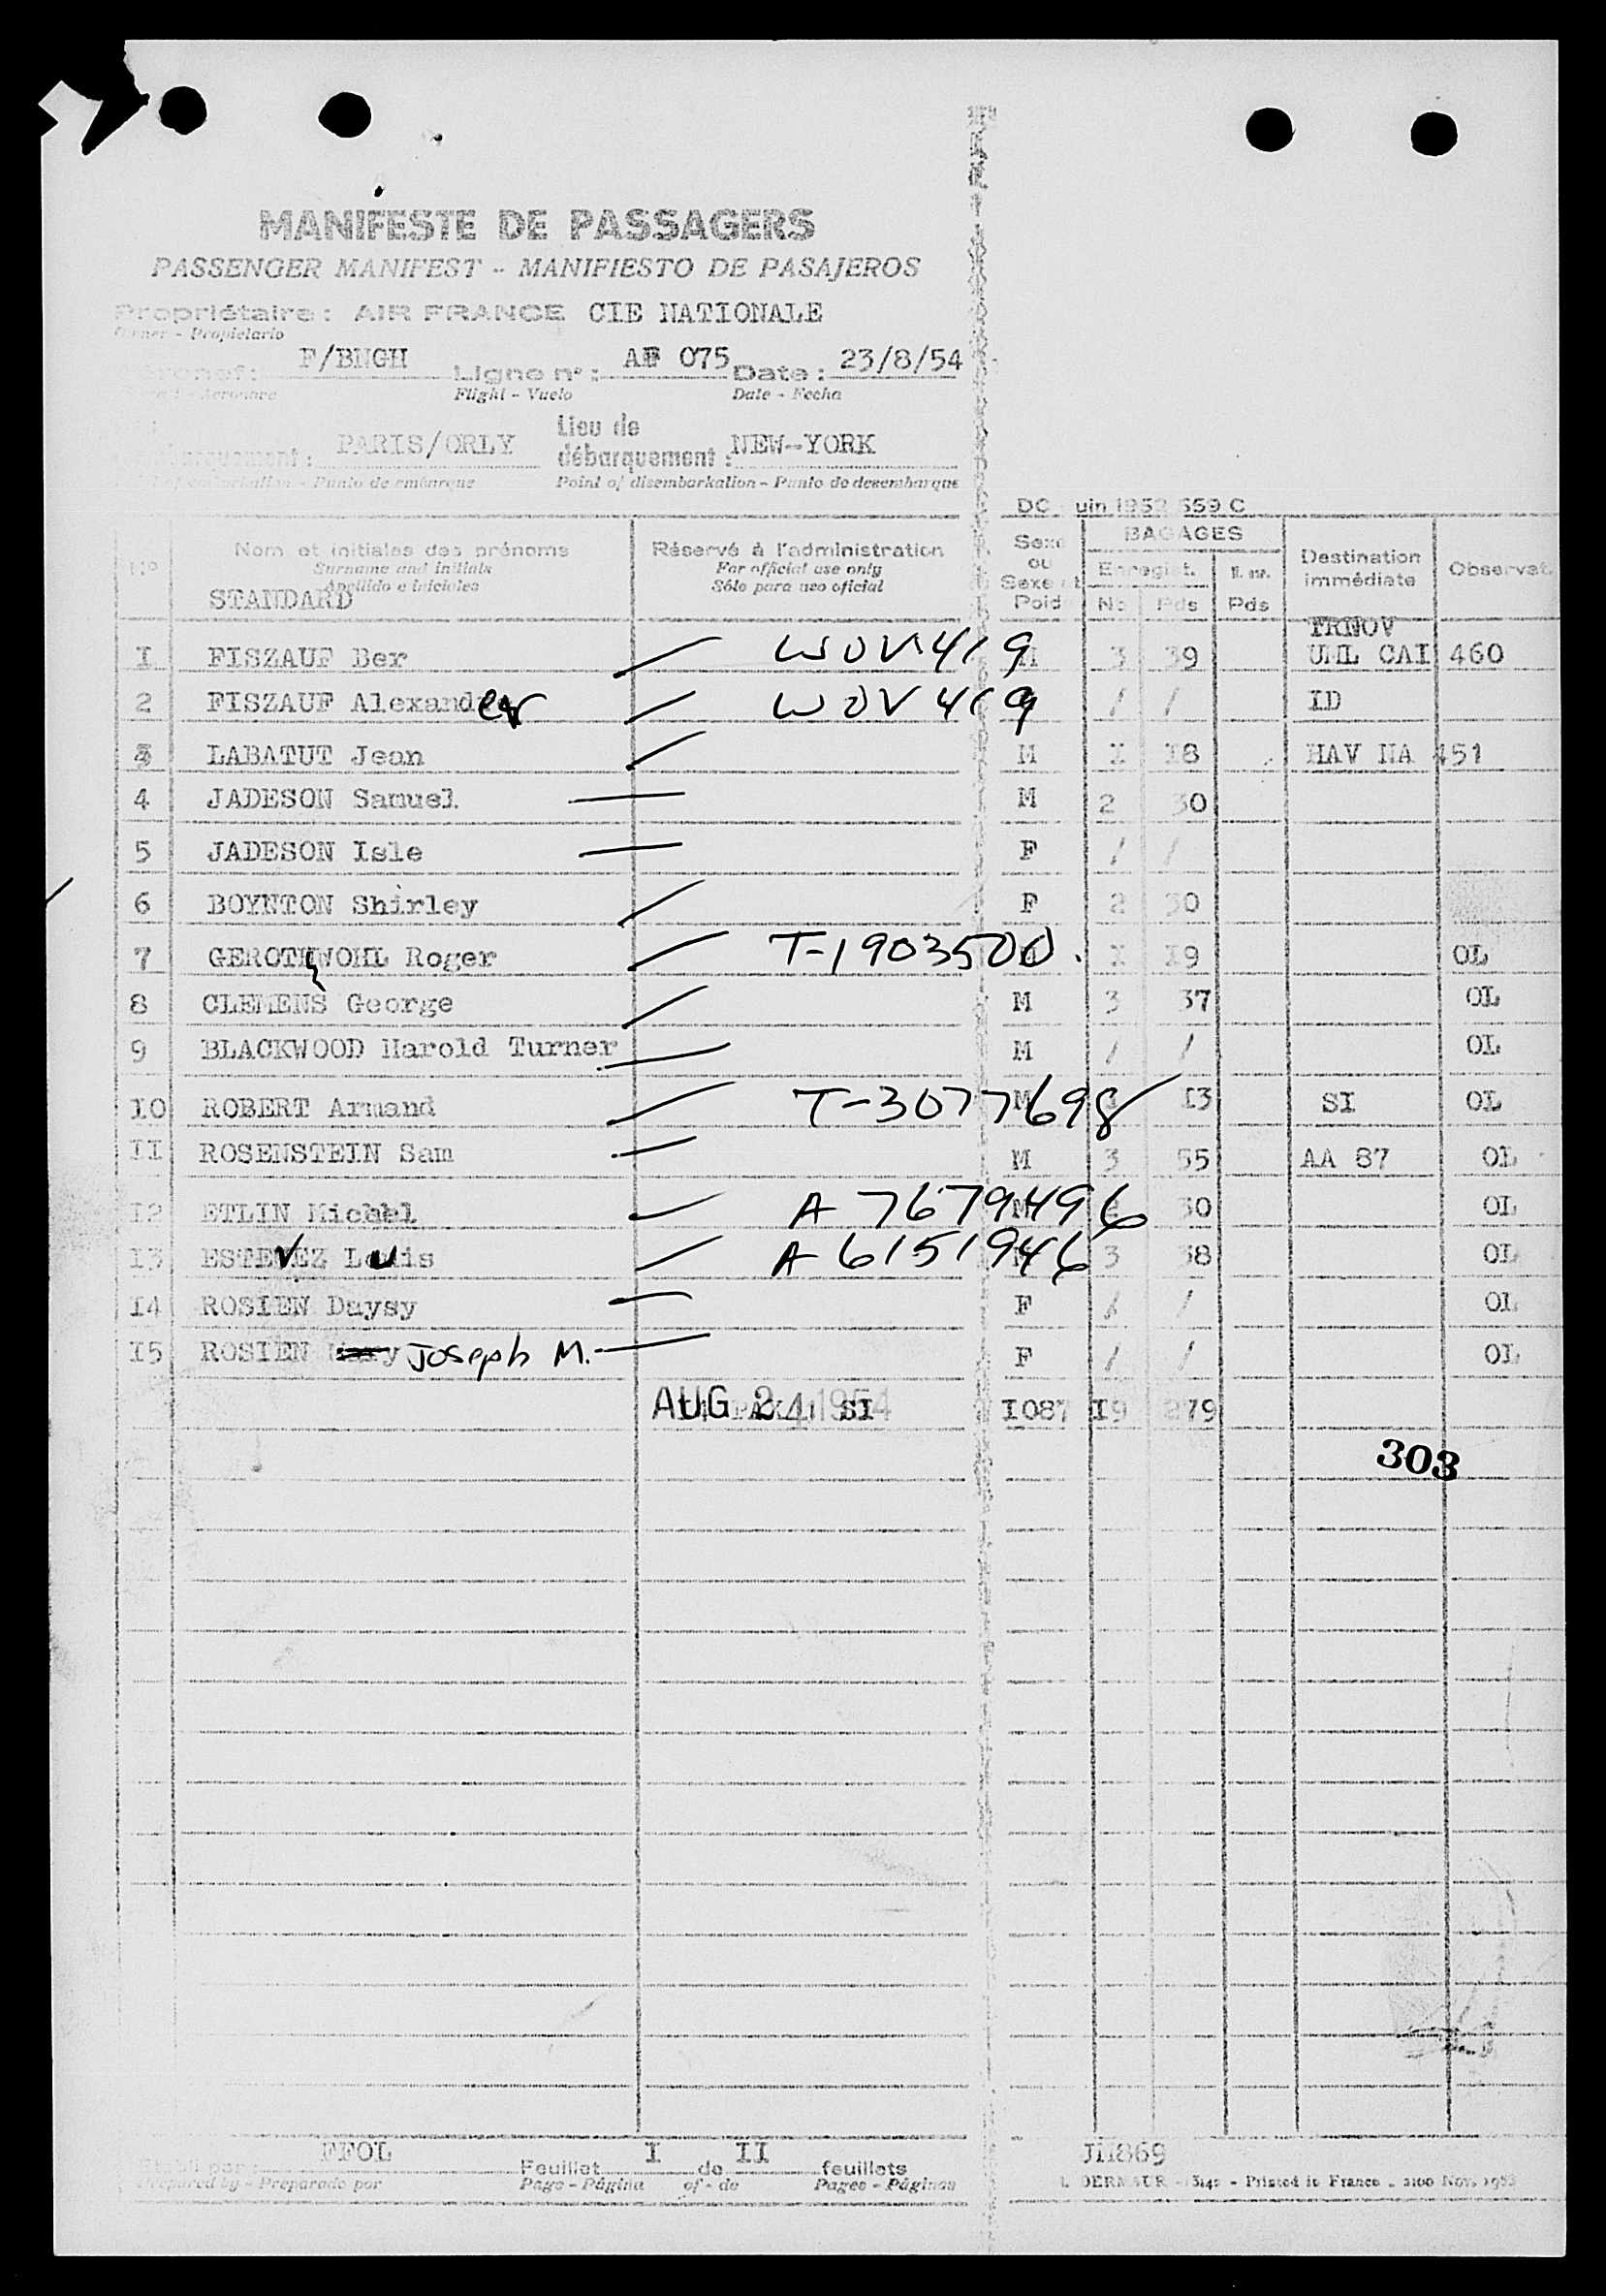 MANIFESTE DE PASSAGERS
PASSENGER MANIFEST - MANIFIESTO DE PASAJEROS
Propriétaire : AIR FRANCE CIE NATIONALE
Owner - Propietario
F/BNGH Ligne nº : AF 075 Date : 23/8/54
Flight - Vuelo Date - Fecha
PARIS/ORLY Lieu de débarquement : NEW-YORK
Punto de embarque Point of disembarkation - Punto de desembarque
DC uin 1952 659 C
Nº Nom et initiales des prénoms Réservé à l'administration Sexe ou Sexe et Poids BAGAGES Destination immédiate Observat.
Surname and initials For official use only Enregist.
Apellido e iniciales Sólo para uso oficial No Pds Pds
STANDARD
TRNOV
I FISZAUF Ber WOV419 M 3 39 UML CAI 460
2 FISZAUF Alexander WOV419 / / ID
3 LABATUT Jean M I I8 HAV NA 451
4 JADESON Samuel M 2 30
5 JADESON Isle F / /
6 BOYNTON Shirley F 2 30
7 GEROTHWOHL Roger T-1903500 I I9 OL
8 CLEMENS George M 3 37 OL
9 BLACKWOOD Harold Turner M / / OL
IO ROBERT Armand T-3077698 M I3 SI OL
II ROSENSTEIN Sam M 3 55 AA 87 OL
I2 ETLIN Michel A 7679496 M 30 OL
I3 ESTEVEZ Louis A 6151946 3 38 OL
I4 ROSIEN Daysy F / / OL
I5 ROSIEN Mary Joseph M. F / / OL
AUG 24 1954 SI I087 I9 279
303
FFOL Feuillet I de II feuillets JH869
Prepared by - Preparado por Page - Página of - de Pages - Páginas Printed in France - 2100 Nov. 1953